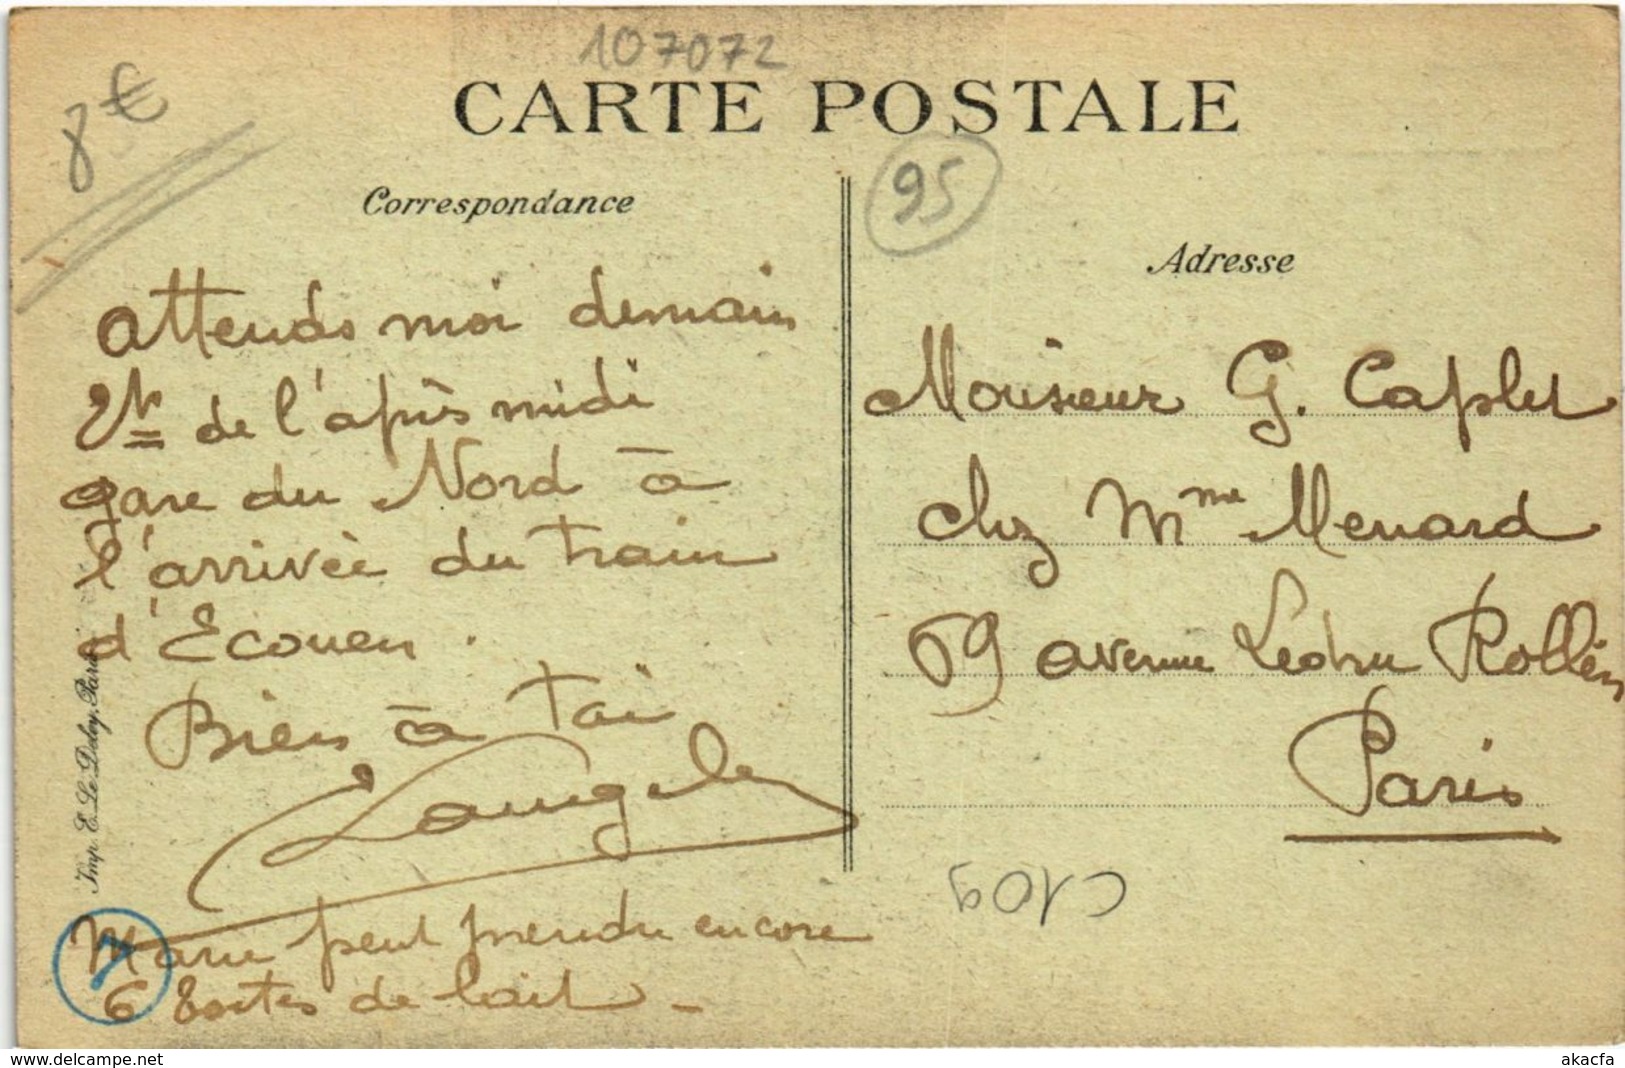 107072
8€
CARTE POSTALE
95
Correspondance
Adresse
attends moi demain
Vn de l'après midi
gare du Nord à
l'arrivée du train
d'Ecouen.
Bien à toi
Monsieur G. Caplet
chez Mme Menard
69 avenue Ledru Rollin
Paris
Imp. E. Le Deley, Paris
C109
7
Marie peut prendre encore
6 boites de lait -
delcampe.net
akacfa